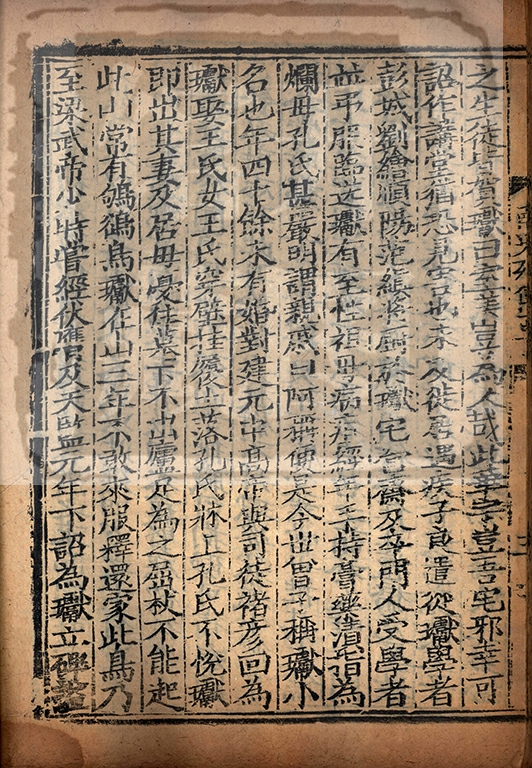 之生徒皆賀瓛曰室美豈為人哉此華宇豈吾宅邪幸可
詔作講堂猶恐見害也未及徙居遇疾子良遣從瓛學者
彭城劉繪順陽范縝將厨於瓛宅營齋及卒門人受學者
並弔服臨送瓛有至性祖母病疽經年手持膏藥漬指為
爛母孔氏甚嚴明謂親戚曰阿稱便是今世曾子稱瓛小
名也年四十餘未有婚對建元中高帝與司徒褚彦回為
瓛娶王氏女王氏穿壁挂履土落孔氏牀上孔氏不悅瓛
即出其妻及居母憂住墓下不出廬足為之屈杖不能起
此山常有鴝鵒鳥瓛在山三年不敢來服釋還家此鳥乃
至梁武帝少時嘗經伏膺及天監元年下詔為瓛立碑諡